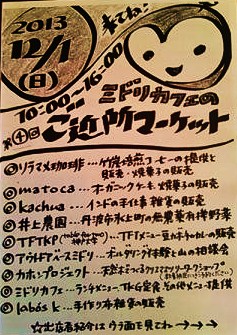 2013
12/1
(日)
来てね!
10:00〜16:00
ミドリカフェの
第4回
ご近所マーケット
◎ソラマメ珈琲…竹炭焙煎コーヒーの提供と
販売・焼菓子の販売
◎matoca…オーガニックケーキ、焼菓子の販売
◎kachua…インドの手仕事雑貨の販売
◎井上農園…丹波市氷上町の無農薬有機野菜
◎TFTKP
◎アウトドアーズミドリ…ボルダリング体験と山の相談会
◎カホンプロジェクト…
◎ミドリカフェ…ランチメニュー、その他メニュー提供
◎labós k…手作り布雑貨の販売
☆出店者紹介はウラ面を見てね→→→